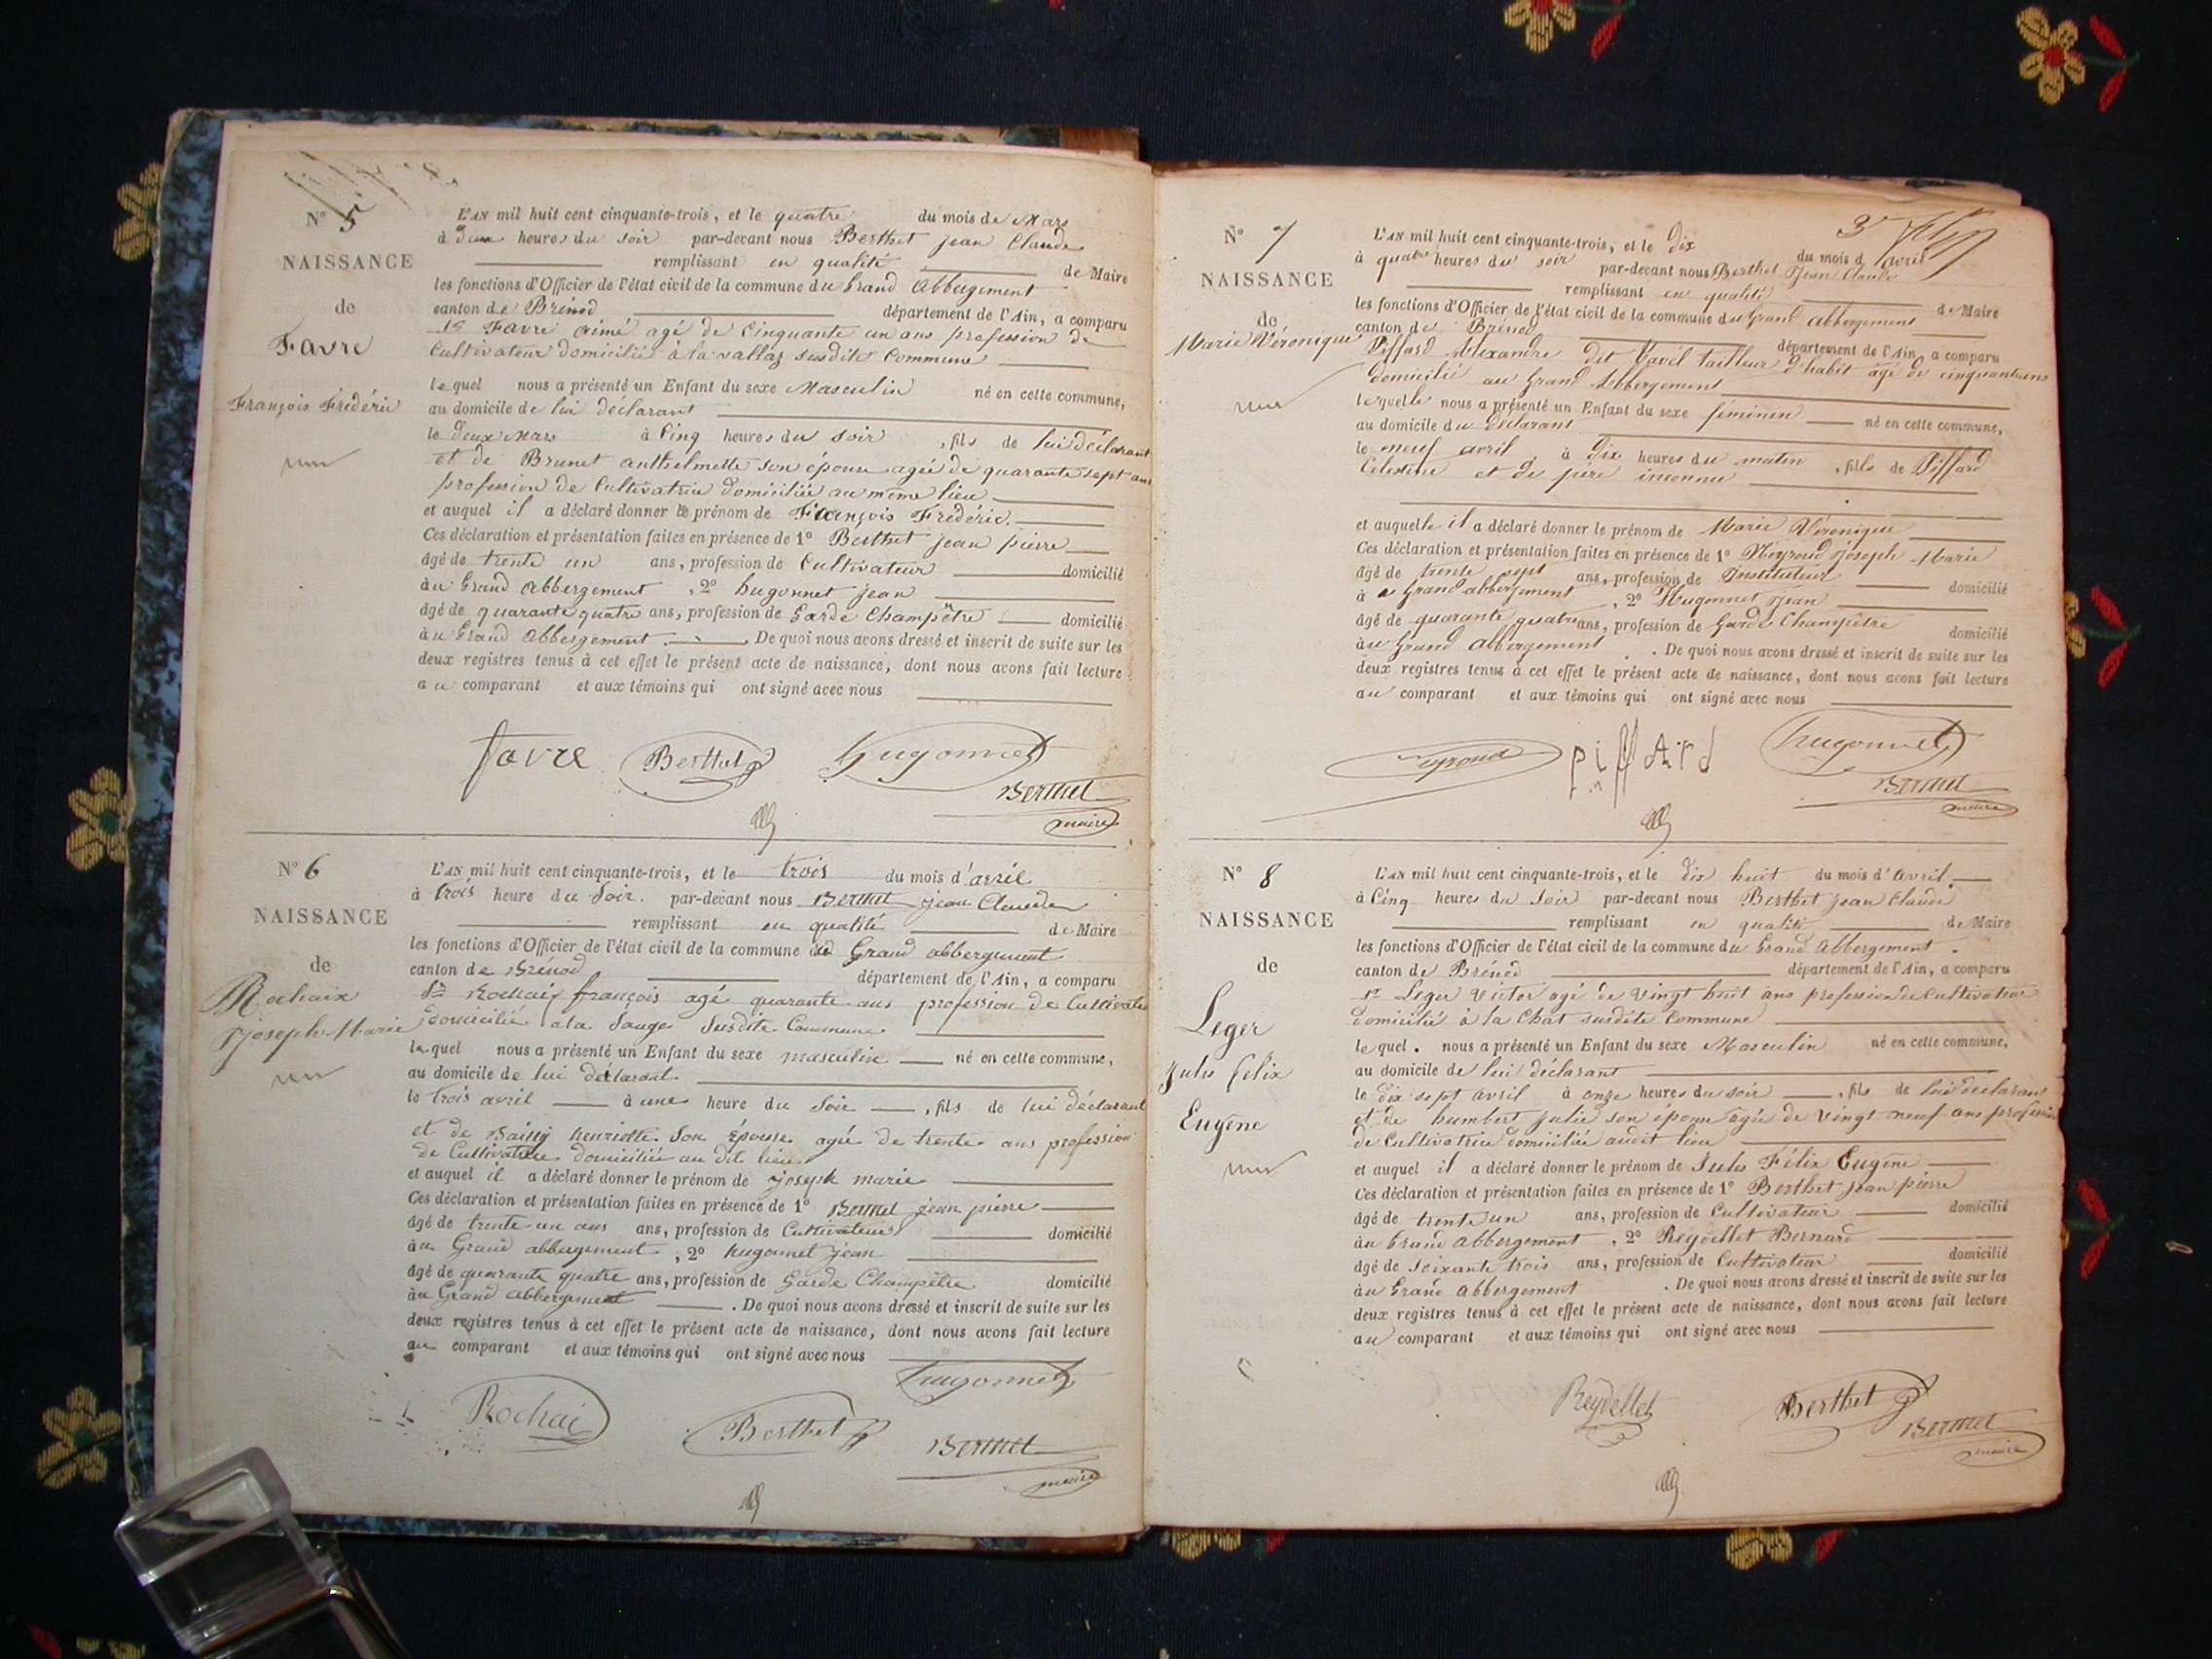 N° 5
NAISSANCE
de
Favre
François Frédéric
L'AN mil huit cent cinquante-trois, et le quatre du mois de Mars
à deux heures du soir par-devant nous Berthet jean Claude
remplissant en qualité de Maire
les fonctions d'Officier de l'état civil de la commune du Grand Abbergement
canton de Brénod département de l'Ain, a comparu
Sr Favre aimé agé de Cinquante un ans profession de
Cultivateur domicilié à la vallaz susdite Commune
lequel nous a présenté un Enfant du sexe Masculin né en cette commune,
au domicile de lui déclarant
le deux Mars à Cinq heures du soir, fils de lui déclarant
et de Brunet anthelmette son épouse agée de quarante sept ans
profession de Cultivatrice domiciliée au même lieu
et auquel il a déclaré donner le prénom de François Frédéric.
Ces déclaration et présentation faites en présence de 1° Berthet jean pierre
âgé de trente un ans, profession de Cultivateur domicilié
au Grand Abbergement, 2° hugonnet jean
âgé de quarante quatre ans, profession de Garde Champêtre domicilié
au Grand Abbergement. De quoi nous avons dressé et inscrit de suite sur les
deux registres tenus à cet effet le présent acte de naissance, dont nous avons fait lecture
au comparant et aux témoins qui ont signé avec nous
favre Berthet hugonnet
Berthet
maire
N° 6
NAISSANCE
de
Rochaix
joseph Marie
L'AN mil huit cent cinquante-trois, et le trois du mois d'avril
à trois heure du Soir. par-devant nous Berthet jean Claude
remplissant en qualité de Maire
les fonctions d'Officier de l'état civil de la commune du Grand abbergement
canton de Brénod département de l'Ain, a comparu
Sr Rochaix françois agé quarante ans profession de Cultivateur
domicilié a la Sauge Susdite Commune
lequel nous a présenté un Enfant du sexe masculin né en cette commune,
au domicile de lui déclarant
le trois avril à une heure du Soir, fils de lui déclarant
et de Bailly henriette Son épouse agée de trente ans profession
de Cultivatrice domiciliée au dit lieu
et auquel il a déclaré donner le prénom de joseph marie
Ces déclaration et présentation faites en présence de 1° Berthet jean pierre
âgé de trente un ans ans, profession de Cultivateur domicilié
au Grand abbergement, 2° hugonnet jean
âgé de quarante quatre ans, profession de Garde Champêtre domicilié
au Grand abbergement. De quoi nous avons dressé et inscrit de suite sur les
deux registres tenus à cet effet le présent acte de naissance, dont nous avons fait lecture
au comparant et aux témoins qui ont signé avec nous
hugonnet
Rochai Berthet Berthet
maire
3
N° 7
NAISSANCE
de
Marie Véronique
L'AN mil huit cent cinquante-trois, et le dix du mois d avril
à quatre heures du soir par-devant nous Berthet Jean Claude
remplissant en qualité de Maire
les fonctions d'Officier de l'état civil de la commune du Grand abbergement
canton de Brénod département de l'Ain, a comparu
Piffard Alexandre dit Cavil tailleur d'habit agé de cinquante ans
domicilié au Grand Abbergement
lequelle nous a présenté un Enfant du sexe féminin né en cette commune,
au domicile du déclarant
le neuf avril à dix heures du matin, fils de Piffard
Célestine et de père inconnu
et auquelle il a déclaré donner le prénom de Marie Véronique
Ces déclaration et présentation faites en présence de 1° Neyroud Joseph Marie
âgé de trente sept ans, profession de Instituteur domicilié
à Grand abbergement, 2° Hugonnet Jean
âgé de quarante quatre ans, profession de Garde Champêtre domicilié
au Grand Abbergement. De quoi nous avons dressé et inscrit de suite sur les
deux registres tenus à cet effet le présent acte de naissance, dont nous avons fait lecture
au comparant et aux témoins qui ont signé avec nous
Neyroud piffard hugonnet
Berthet
maire
N° 8
NAISSANCE
de
Leger
jules felix
Eugène
L'AN mil huit cent cinquante-trois, et le dix huit du mois d'avril.
à Cinq heures du soir par-devant nous Berthet jean Claude
remplissant en qualité de Maire
les fonctions d'Officier de l'état civil de la commune du Grand Abbergement.
canton de Brénod département de l'Ain, a comparu
Sr Leger Victor agé de vingt huit ans profession de Cultivateur
domicilié à la Chat susdite Commune
lequel. nous a présenté un Enfant du sexe Masculin né en cette commune,
au domicile de lui déclarant
le dix sept avril à onze heures du soir, fils de lui déclarant
et de humbert julie son épouse agée de vingt neuf ans profession
de Cultivatrice domiciliée audit lieu
et auquel il a déclaré donner le prénom de Jules Félix Eugène
Ces déclaration et présentation faites en présence de 1° Berthet jean pierre
âgé de trente un ans, profession de Cultivateur domicilié
au Grand Abbergement, 2° Reydellet Bernard
âgé de soixante trois ans, profession de Cultivateur domicilié
au Grand Abbergement. De quoi nous avons dressé et inscrit de suite sur les
deux registres tenus à cet effet le présent acte de naissance, dont nous avons fait lecture
au comparant et aux témoins qui ont signé avec nous
Reydellet Berthet
Berthet
maire